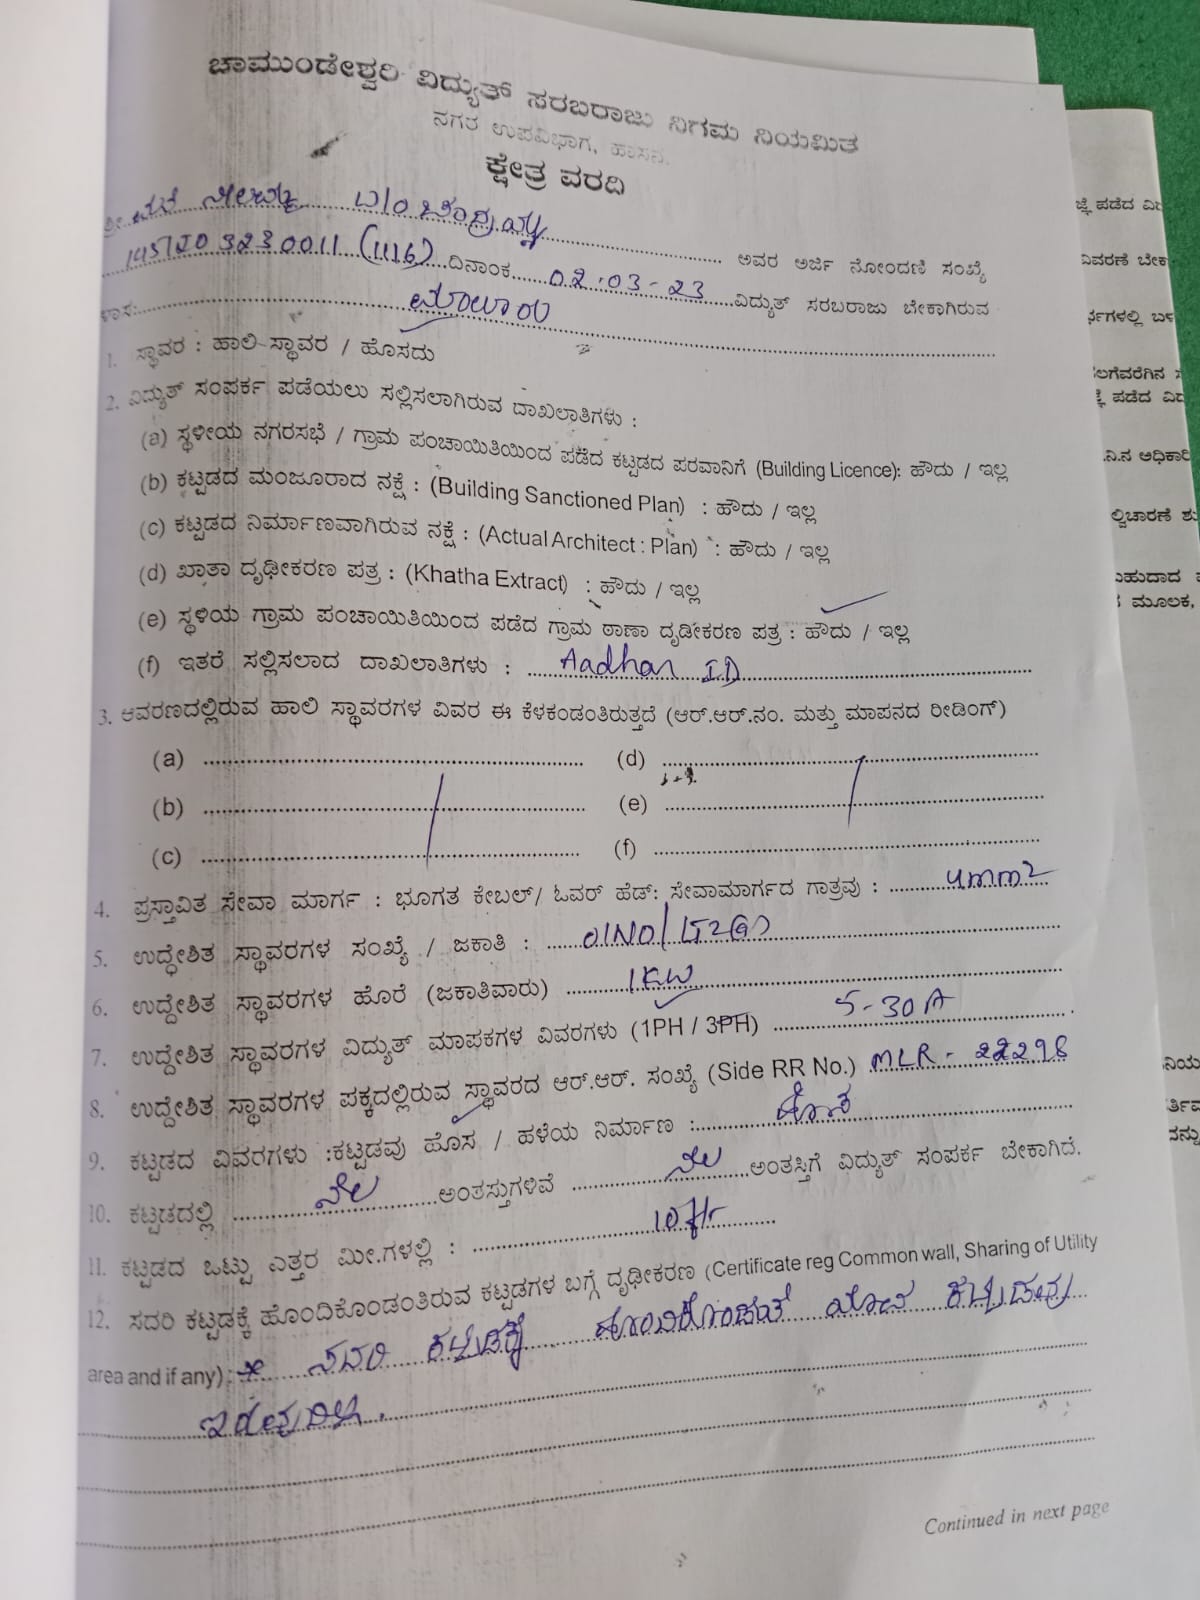 ಚಾಮುಂಡೇಶ್ವರಿ ವಿದ್ಯುತ್ ಸರಬರಾಜು ನಿಗಮ ನಿಯಮಿತ
ನಗರ ಉಪವಿಭಾಗ, ಹಾಸನ.
ಕ್ಷೇತ್ರ ವರದಿ
ಶ್ರೀ
ಅವರ ಅರ್ಜಿ ನೋಂದಣಿ ಸಂಖ್ಯೆ
(1116) ದಿನಾಂಕ 02-03-23 ವಿದ್ಯುತ್ ಸರಬರಾಜು ಬೇಕಾಗಿರುವ
1. ಸ್ಥಾವರ : ಹಾಲಿ ಸ್ಥಾವರ / ಹೊಸದು
2. ವಿದ್ಯುತ್ ಸಂಪರ್ಕ ಪಡೆಯಲು ಸಲ್ಲಿಸಲಾಗಿರುವ ದಾಖಲಾತಿಗಳು :
(a) ಸ್ಥಳೀಯ ನಗರಸಭೆ / ಗ್ರಾಮ ಪಂಚಾಯಿತಿಯಿಂದ ಪಡೆದ ಕಟ್ಟಡದ ಪರವಾನಿಗೆ (Building Licence): ಹೌದು / ಇಲ್ಲ
(b) ಕಟ್ಟಡದ ಮಂಜೂರಾದ ನಕ್ಷೆ : (Building Sanctioned Plan) : ಹೌದು / ಇಲ್ಲ
(c) ಕಟ್ಟಡದ ನಿರ್ಮಾಣವಾಗಿರುವ ನಕ್ಷೆ : (Actual Architect : Plan) : ಹೌದು / ಇಲ್ಲ
(d) ಖಾತಾ ದೃಢೀಕರಣ ಪತ್ರ : (Khatha Extract) : ಹೌದು / ಇಲ್ಲ
(e) ಸ್ಥಳಿಯ ಗ್ರಾಮ ಪಂಚಾಯಿತಿಯಿಂದ ಪಡೆದ ಗ್ರಾಮ ಠಾಣಾ ದೃಡೀಕರಣ ಪತ್ರ : ಹೌದು / ಇಲ್ಲ
(f) ಇತರೆ ಸಲ್ಲಿಸಲಾದ ದಾಖಲಾತಿಗಳು : Aadhar ID
3. ಆವರಣದಲ್ಲಿರುವ ಹಾಲಿ ಸ್ಥಾವರಗಳ ವಿವರ ಈ ಕೆಳಕಂಡಂತಿರುತ್ತದೆ (ಆರ್.ಆರ್.ನಂ. ಮತ್ತು ಮಾಪನದ ರೀಡಿಂಗ್)
(a) (d)
(b) (e)
(c) (f)
4. ಪ್ರಸ್ತಾವಿತ ಸೇವಾ ಮಾರ್ಗ : ಭೂಗತ ಕೇಬಲ್/ ಓವರ್ ಹೆಡ್: ಸೇವಾಮಾರ್ಗದ ಗಾತ್ರವು : 4mm2
5. ಉದ್ಧೇಶಿತ ಸ್ಥಾವರಗಳ ಸಂಖ್ಯೆ / ಜಕಾತಿ : 01NO/
6. ಉದ್ದೇಶಿತ ಸ್ಥಾವರಗಳ ಹೊರೆ (ಜಕಾತಿವಾರು) 1KW
7. ಉದ್ದೇಶಿತ ಸ್ಥಾವರಗಳ ವಿದ್ಯುತ್ ಮಾಪಕಗಳ ವಿವರಗಳು (1PH / 3PH) 5-30A
8. ಉದ್ದೇಶಿತ ಸ್ಥಾವರಗಳ ಪಕ್ಕದಲ್ಲಿರುವ ಸ್ಥಾವರದ ಆರ್.ಆರ್. ಸಂಖ್ಯೆ (Side RR No.) MLR - 22298
9. ಕಟ್ಟಡದ ವಿವರಗಳು :ಕಟ್ಟಡವು ಹೊಸ / ಹಳೆಯ ನಿರ್ಮಾಣ : ಹೊಸ
10. ಕಟ್ಟಡದಲ್ಲಿ ನೆಲ ಅಂತಸ್ತುಗಳಿವೆ ನೆಲ ಅಂತಸ್ತಿಗೆ ವಿದ್ಯುತ್ ಸಂಪರ್ಕ ಬೇಕಾಗಿದೆ.
11. ಕಟ್ಟಡದ ಒಟ್ಟು ಎತ್ತರ ಮೀ.ಗಳಲ್ಲಿ :
12. ಸದರಿ ಕಟ್ಟಡಕ್ಕೆ ಹೊಂದಿಕೊಂಡಂತಿರುವ ಕಟ್ಟಡಗಳ ಬಗ್ಗೆ ದೃಢೀಕರಣ (Certificate reg Common wall, Sharing of Utility
area and if any): ಸದರಿ ಕಟ್ಟಡಕ್ಕೆ ಹೊಂದಿಕೊಂಡಂತೆ ಕಟ್ಟಡವು
ಇರುವುದಿಲ್ಲ.
Continued in next page